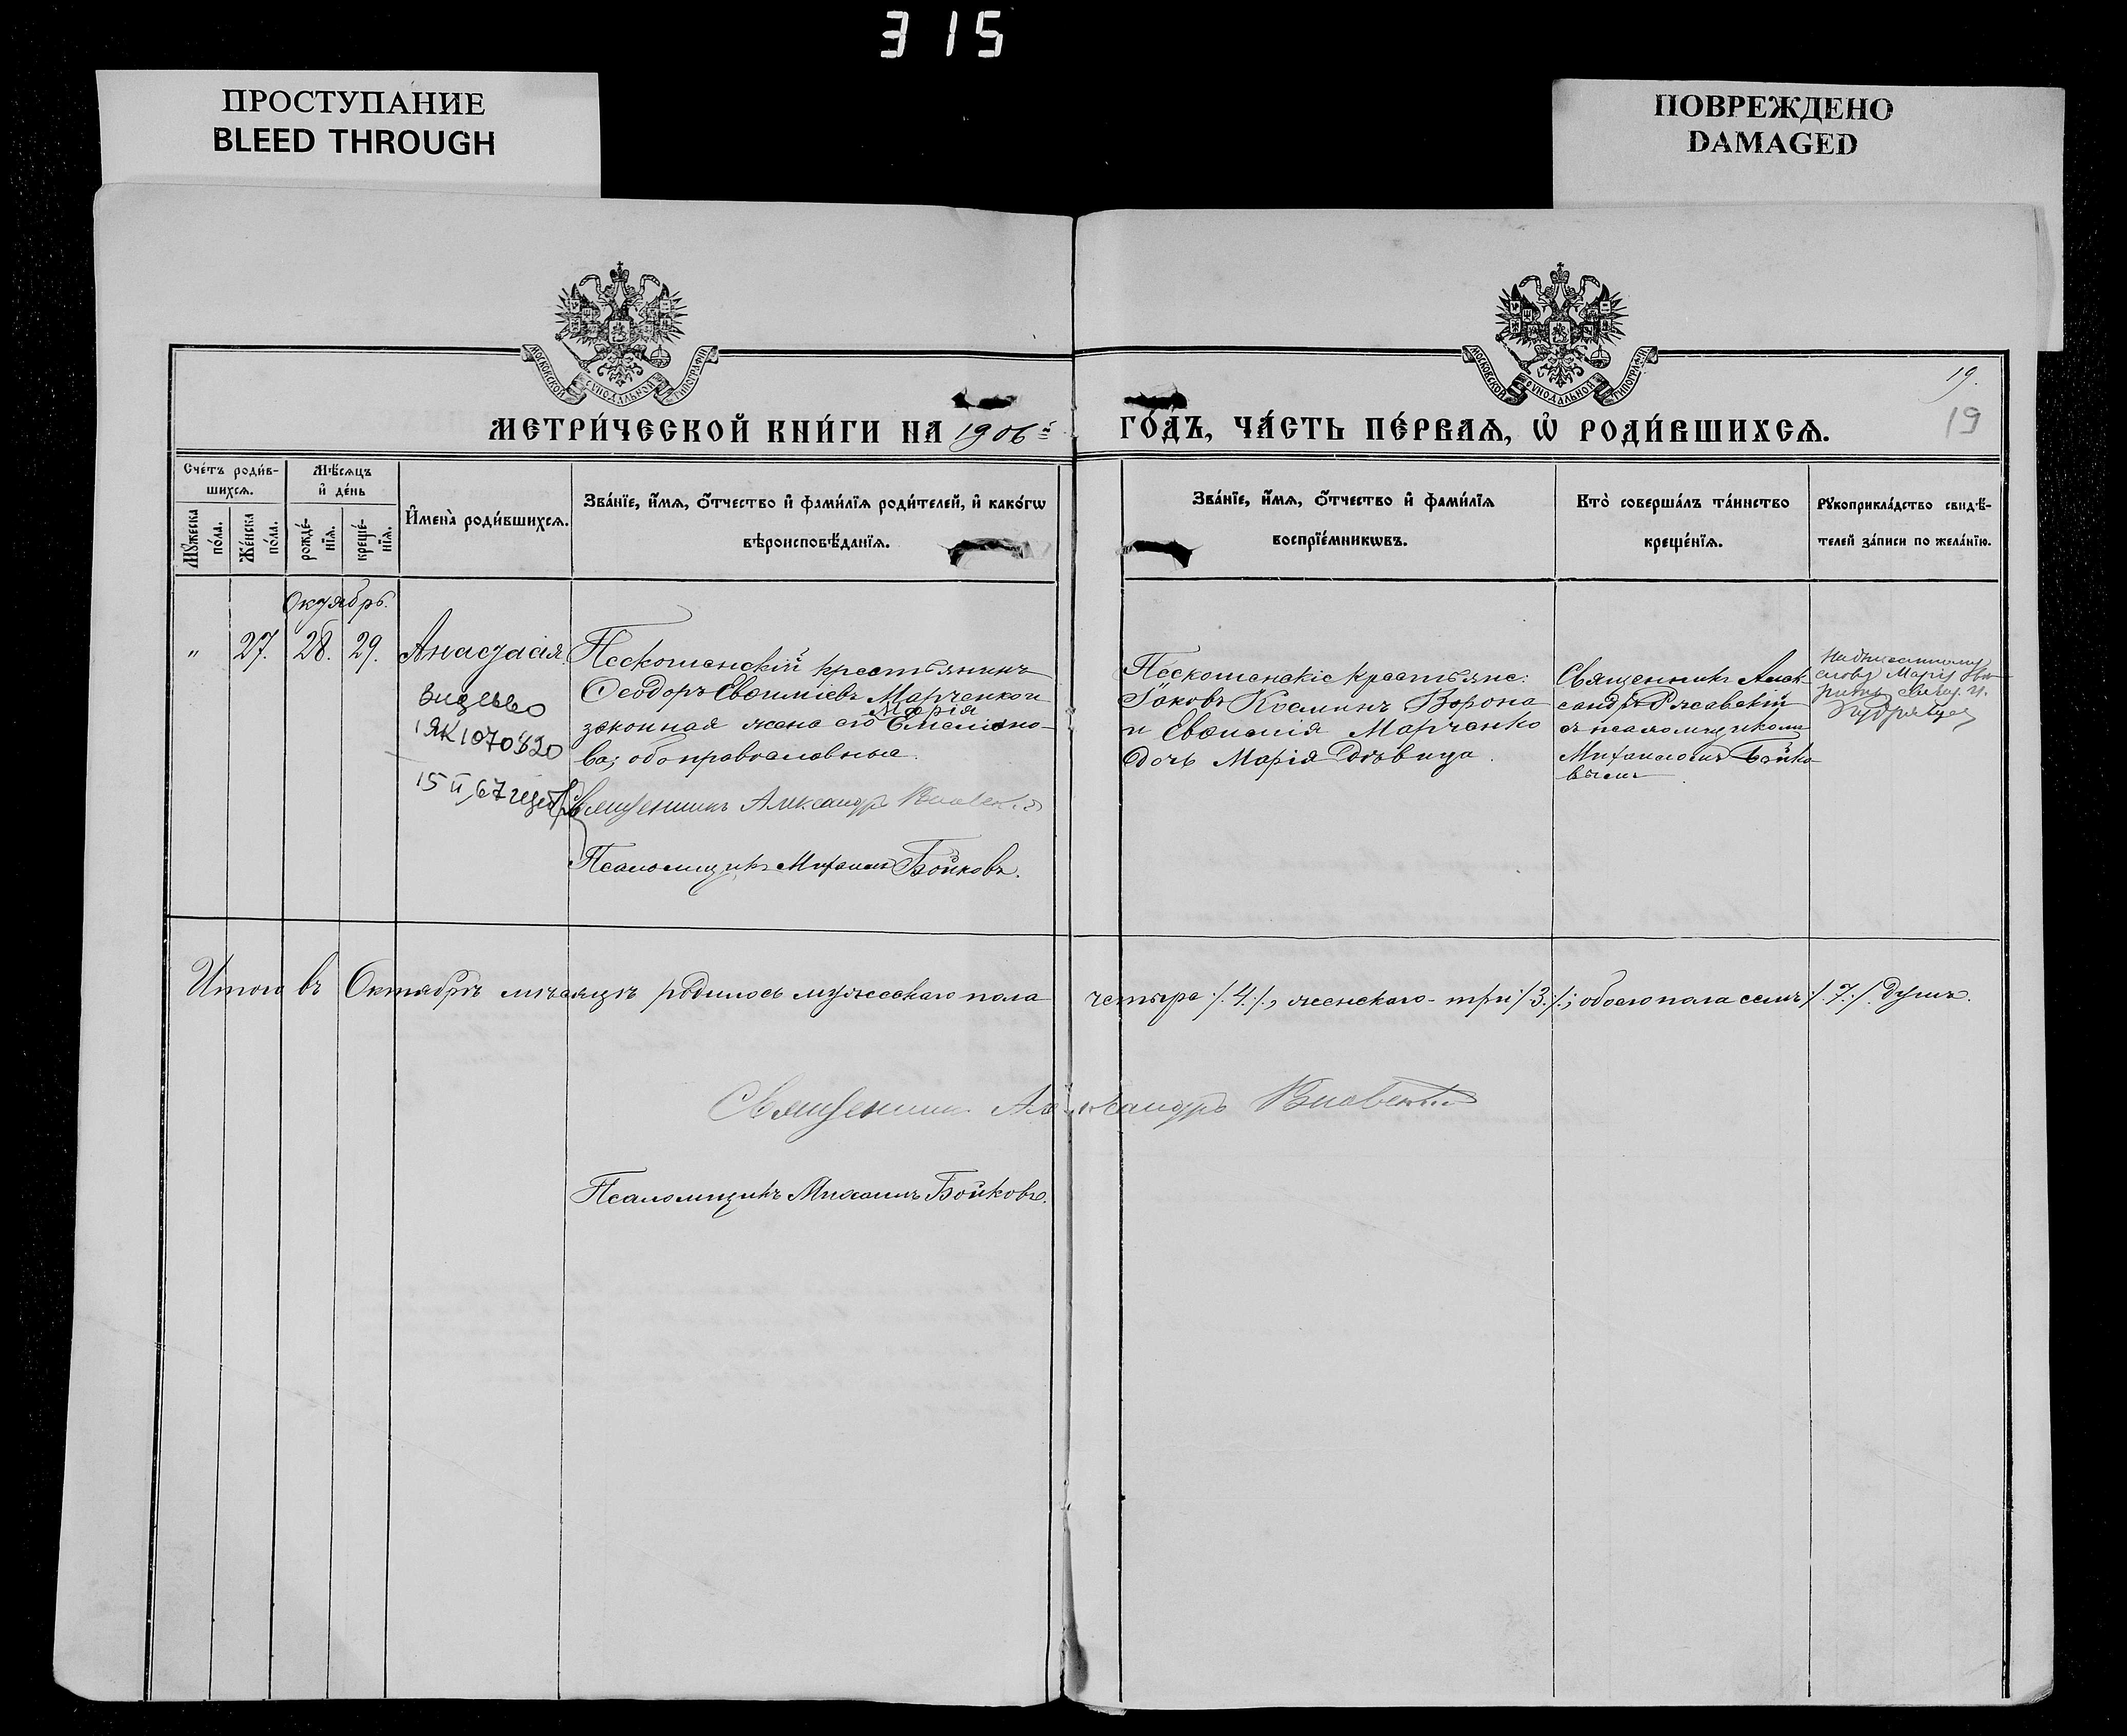 315
ПРОСТУПАНИЕ
BLEED THROUGH
ПОВРЕЖДЕНО
DAMAGED
МОСКОВСКОЙ СѴНОДАЛЬНОЙ ТИПОГРАФІИ
МОСКОВСКОЙ СѴНОДАЛЬНОЙ ТИПОГРАФІИ
19.
19
МЕТРИ́ЧЕСКОЙ КНИ́ГИ НА 1906й
ГО́ДЪ, ЧА́СТЬ ПЕ́РВАѦ, Ѽ РОДИ́ВШИХСѦ.
Сче́тъ роди́в-
шихсѧ.
Мꙋ́жеска по́ла.
Же́нска по́ла.
Мѣ́сѧцъ
и҆ де́нь
рожде́-
нїѧ.
креще́-
нїѧ.
И҆мена̀ роди́вшихсѧ.
Зва́нїе, и҆́мѧ, ѻ҆́тчество и҆ фами́лїѧ роди́телей, и҆ како́гѡ
вѣроисповѣ́данїѧ.
Зва́нїе, и҆́мѧ, ѻ҆́тчество и҆ фами́лїѧ
воспрїе́мникѡвъ.
Кто̀ соверша́лъ та́инство
креще́нїѧ.
Рꙋкоприкла́дство свидѣ́-
телей за́писи по жела́нїю.
Октябрь.
„ 27. 28. 29. Анастасія.
1ЯК1070820
Пескошенскій крестьянинъ
Ѳеодоръ Евѳиміевъ Марченко и
Марія
законная жена его Емеліано-
ва; оба православные.
Священникъ Александръ
Псаломщикъ Михаилъ Бойковъ.
Пескошенскіе крестьяне:
Іаковъ Косминъ Ворона
и Евѳимія Марченко
дочь Марія дѣвица.
Священникъ Алек-
сандръ
съ псаломщикомъ
Михаиломъ Бойко-
вымъ
Надписанному
слову Марія
Итого въ Октябрѣ мѣсяцѣ родилось мужескаго пола четыре /.4./, женскаго - три /.3./; обоего пола семь /.7./. душъ.
Священникъ Александръ
Псаломщикъ Михаилъ Бойковъ.